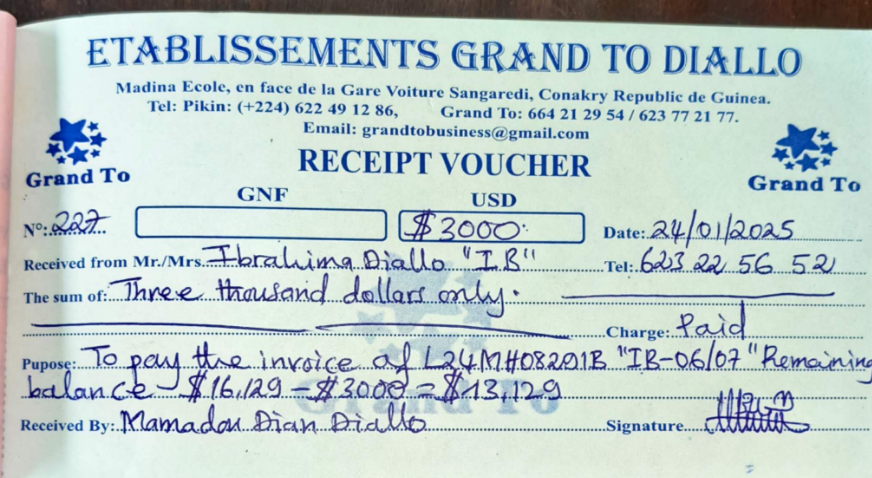 ETABLISSEMENTS GRAND TO DIALLO
Madina Ecole, en face de la Gare Voiture Sangaredi, Conakry Republic de Guinea.
Tel: Pikin: (+224) 622 49 12 86, Grand To: 664 21 29 54 / 623 77 21 77.
Email: grandtobusiness@gmail.com
RECEIPT VOUCHER
Grand To
Grand To
GNF USD
N°: 227 $3000 Date: 24/01/2025
Received from Mr./Mrs. Ibrahima Diallo "IB" Tel: 623 22 56 52
The sum of: Three thousand dollars only.
Charge: Paid
Pupose: To pay the invoice of L24MH08201B "IB-06/07" Remaining
balance $16,129 - $3000 = $13,129
Grand To
Received By: Mamadou Dian Diallo Signature